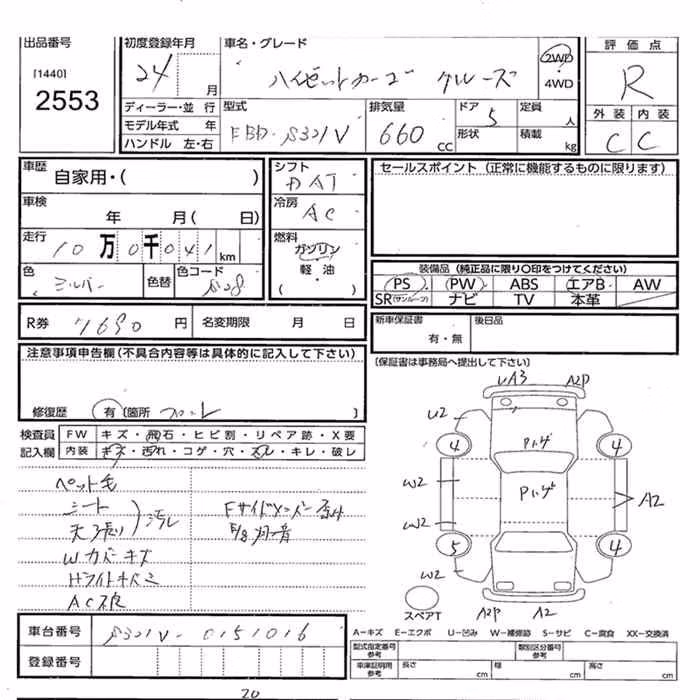 出品番号
[1440]
2553
初度登録年月
24 月
車名・グレード
ハイゼットカーゴ クルーズ
2WD
4WD
評価点
R
外装 内装
C C
ディーラー・並 行
モデル年式 年
ハンドル 左・右
型式
EBD-S321V
排気量
660 CC
ドア
5
形状
定員
人
積載
kg
車歴
自家用・( )
車検
年 月( 日)
走行
10万0千041 km
色
シルバー
色替
色コード
S28
シフト
FAT
冷房
AC
燃料
ガソリン
軽・油
( )
セールスポイント (正常に機能するものに限ります)
装備品 (純正品に限り○印をつけてください)
PS PW ABS エアB AW
SR(サンルーフ) ナビ TV 本革
R券 7690 円
名変期限 月 日
新車保証書
有・無
後日品
(保証書は事務局へ提出して下さい)
注意事項申告欄(不具合内容等は具体的に記入して下さい)
修復歴 有 (箇所 )
検査員
記入欄
FW キズ・飛石・ヒビ割・リペア跡・X要
内装 キズ・汚れ・コゲ・穴・スレ・キレ・破レ
ペット毛
シート
天張り
汚レ
Wカバーキズ
Hライトキバミ
AC不良
Fサイドメンバー
UA3 A2P
U2
4 4
Pレゲ
Pレゲ
W2
A2
W2
5 4
W2
スペアT
A2P A2
車台番号 S321V-0151016
登録番号
A-キズ E-エクボ U-凹み W-補修跡 S-サビ C-腐食 XX-交換済
型式指定番号
参考
類別区分番号
参考
車庫証明用
参考
長さ cm
幅 cm
高さ cm
20